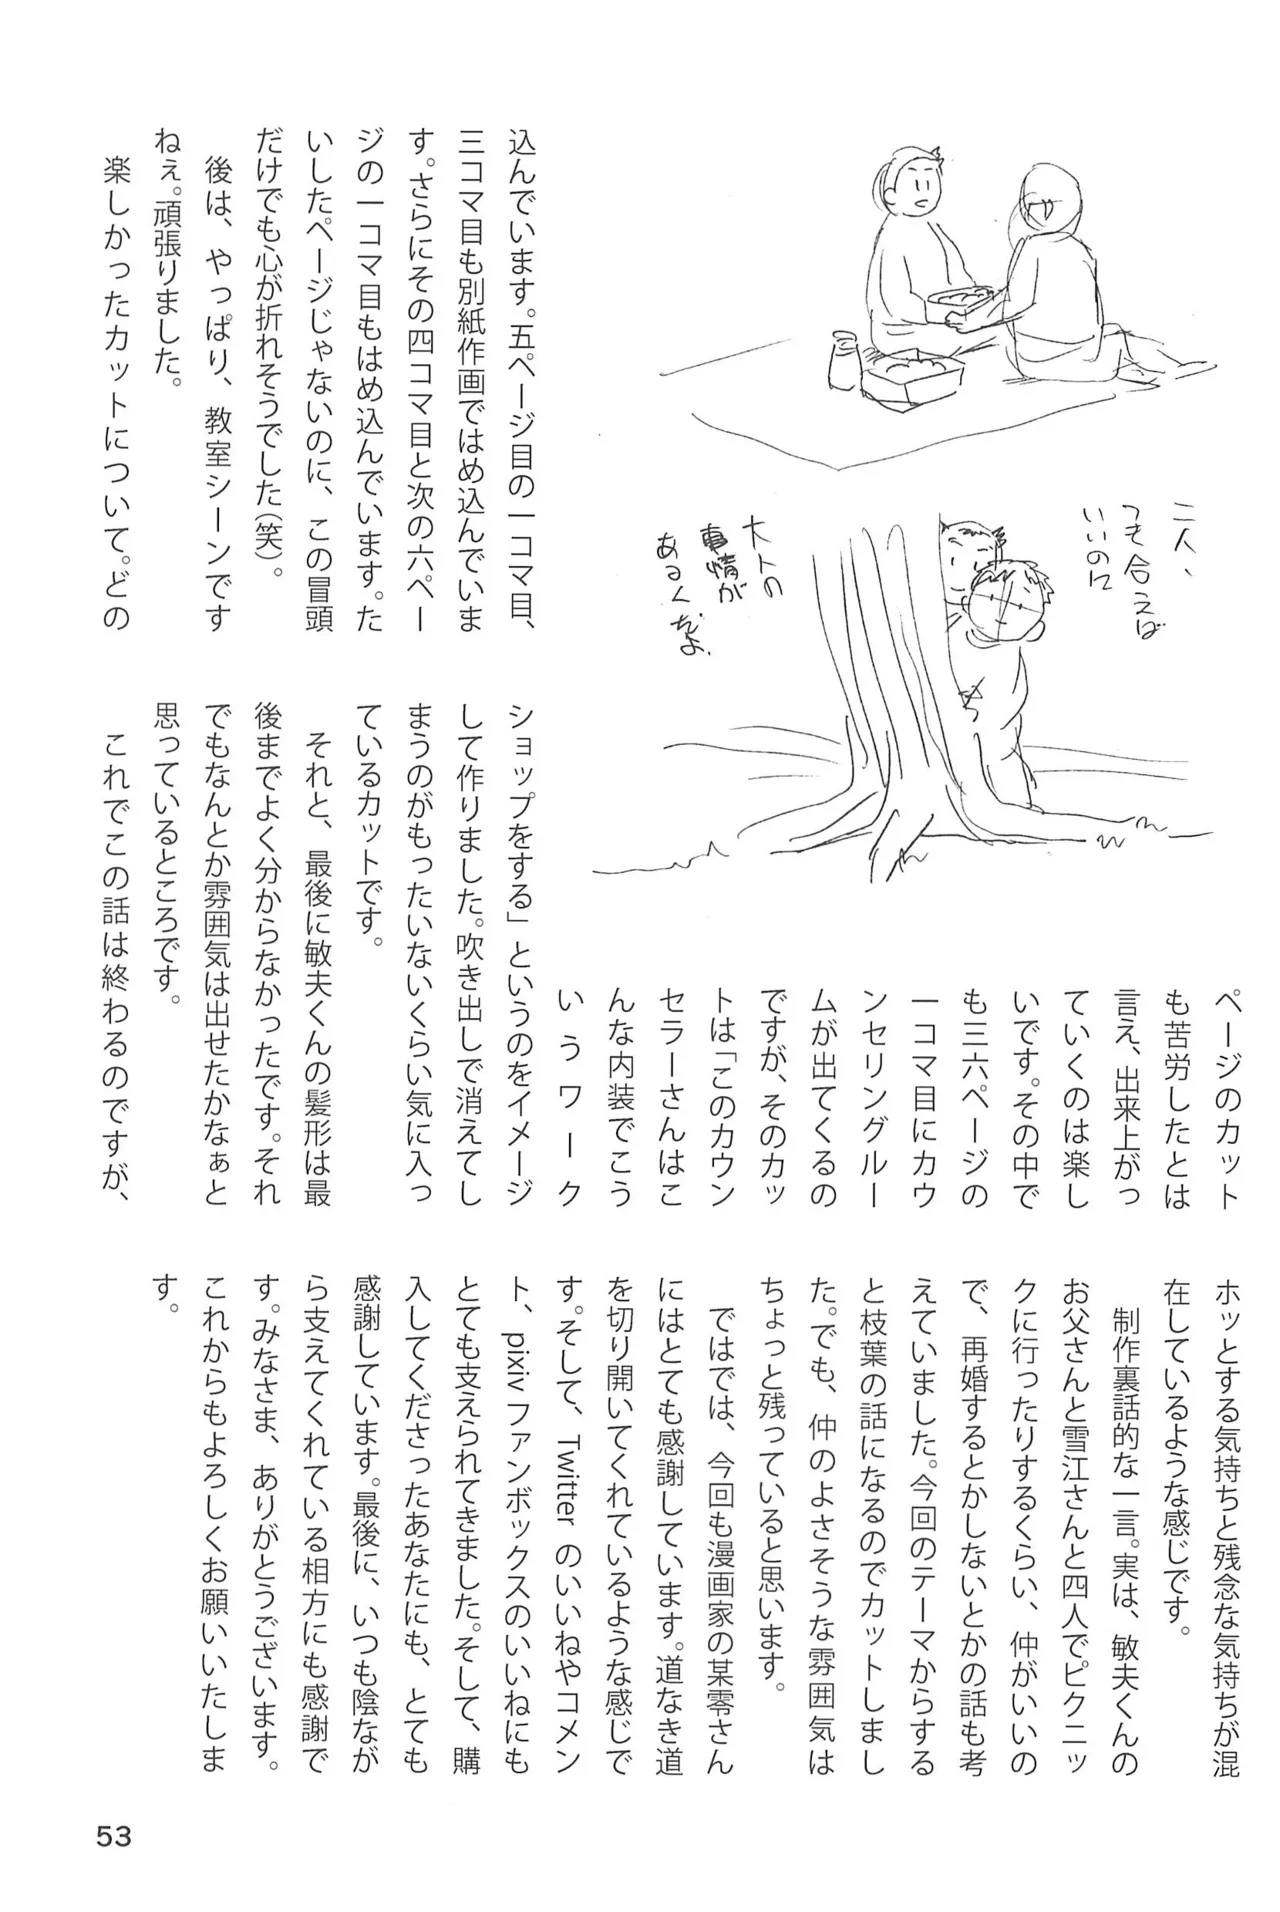 二人、
つき合えば
いいのに
大人の
事情が
あるんだよ。
込んでいます。五ページ目の一コマ目、
三コマ目も別紙作画ではめ込んでいま
す。さらにその四コマ目と次の六ペー
ジの一コマ目もはめ込んでいます。た
いしたページじゃないのに、この冒頭
だけでも心が折れそうでした(笑)。
後は、やっぱり、教室シーンです
ねぇ。頑張りました。
楽しかったカットについて。どの
ページのカット
も苦労したとは
言え、出来上がっ
ていくのは楽し
いです。その中で
も三六ページの
一コマ目にカウ
ンセリングルー
ムが出てくるの
ですが、そのカッ
トは「このカウン
セラーさんはこ
んな内装でこう
いうワーク
ショップをする」というのをイメージ
して作りました。吹き出しで消えてし
まうのがもったいないくらい気に入っ
ているカットです。
それと、最後に敏夫くんの髪形は最
後までよく分からなかったです。それ
でもなんとか雰囲気は出せたかなぁと
思っているところです。
これでこの話は終わるのですが、
ホッとする気持ちと残念な気持ちが混
在しているような感じです。
制作裏話的な一言。実は、敏夫くんの
お父さんと雪江さんと四人でピクニッ
クに行ったりするくらい、仲がいいの
で、再婚するとかしないとかの話も考
えていました。今回のテーマからする
と枝葉の話になるのでカットしまし
た。でも、仲のよさそうな雰囲気は
ちょっと残っていると思います。
ではでは、今回も漫画家の某零さん
にはとても感謝しています。道なき道
を切り開いてくれているような感じで
す。そして、Twitterのいいねやコメン
ト、pixivファンボックスのいいねにも
とても支えられてきました。そして、購
入してくださったあなたにも、とても
感謝しています。最後に、いつも陰なが
ら支えてくれている相方にも感謝で
す。みなさま、ありがとうございます。
これからもよろしくお願いいたしま
す。
53